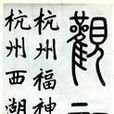 觀
杭州福神
杭州西湖